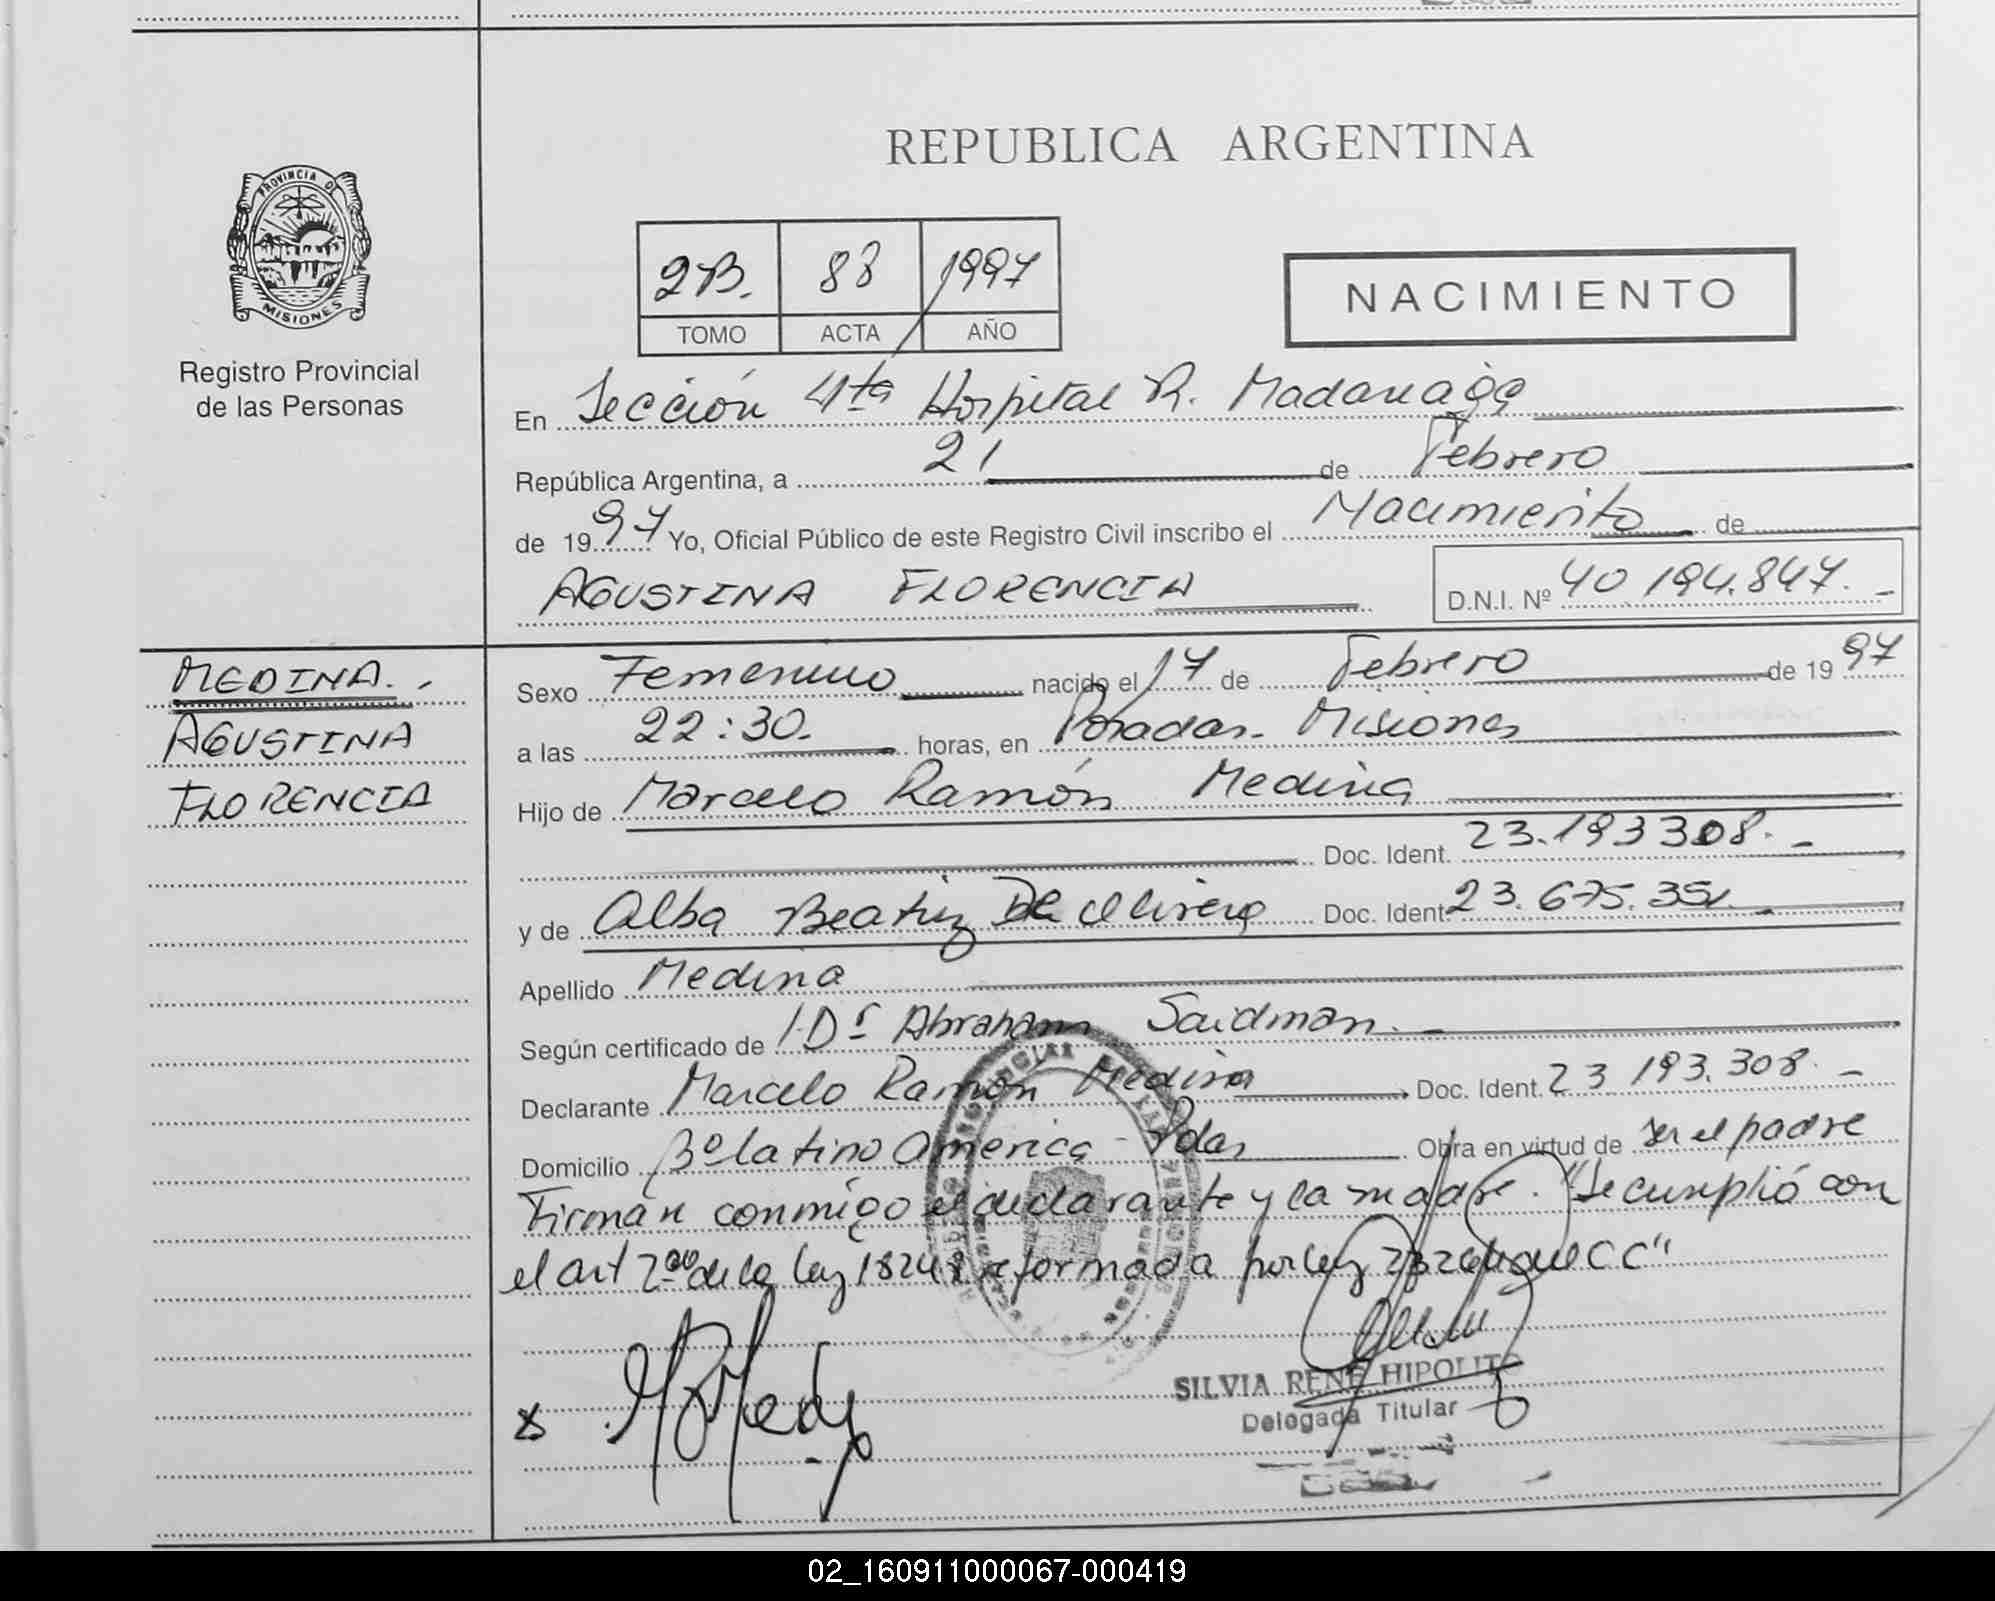 REPUBLICA ARGENTINA
PROVINCIA DE
MISIONES
Registro Provincial
de las Personas
2B. 88 1997
TOMO ACTA AÑO
NACIMIENTO
En Sección 4ta Hospital R. Madariaga
República Argentina, a 21 de Febrero
de 1997 Yo, Oficial Público de este Registro Civil inscribo el Nacimiento de
AGUSTINA FLORENCIA D.N.I. Nº 40 194.847.-
MEDINA.
AGUSTINA
FLORENCIA
Sexo Femenino nacido el 17 de Febrero de 1997
a las 22:30. horas, en Posadas. Misiones
Hijo de Marcelo Ramón Medina
Doc. Ident. 23.193308.-
y de Alba Beatriz De Olivera Doc. Ident. 23.675.351.-
Apellido Medina
Según certificado de Dr Abraham Saidman.-
Declarante Marcelo Ramón Medina Doc. Ident. 23 193.308.-
Domicilio Bº Latino America - Pdas Obra en virtud de ser el padre
Firman conmigo el declarante y la madre. "Se cumplió con
el art 2do de la ley 18248 reformada por ley 23264 CC"
SILVIA RENE HIPOLITO
Delegada Titular
02_160911000067-000419